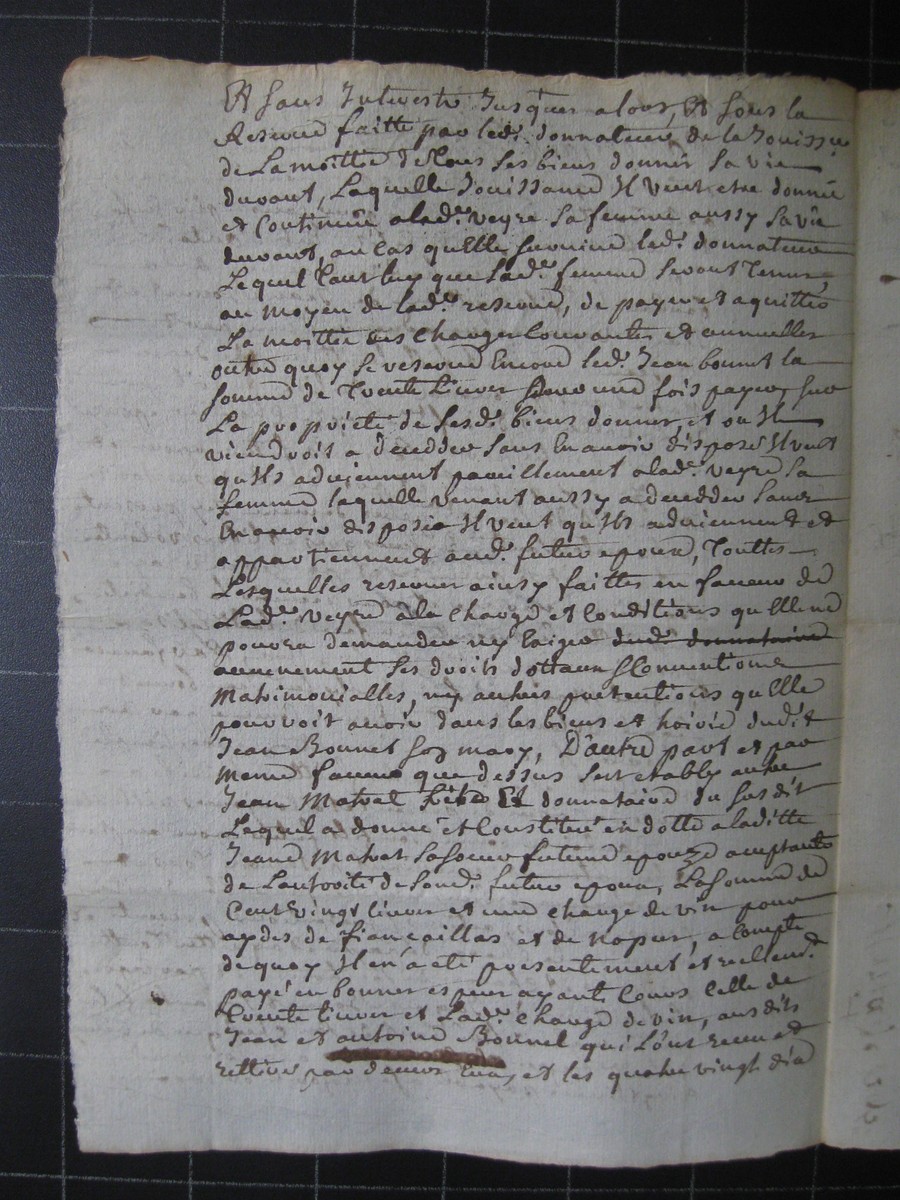 Et sans Interests Jusques alors, Et sous la
Reserve faitte par led. donnateur de la Jouissce
de La moittié de tous ses biens donnés sa vie
durant, Laquelle Jouissance Il veut etre donnée
et Continuée a lad. veyre sa femme aussy sa vie
durant, au Cas quelle survive led. donnateur
Lequel tant luy que Lad. femme seront tenus,
au moyen de lad. reserve, de payer et aquitter
La moittié des charges Courantes et annuelles
outre quoy se reserve Encore led. Jean bonnet la
somme de Trente Livres une fois payee, sur
La proprieté de sesd. biens donnes, et ou Il
viendroit a decedder sans En avoir disposé Il veut
quils adviennent pareillement a lad. veyre sa
femme laquelle venant aussy a decedder sans
En avoir disposé Il veut quils adviennent et
appartiennent aud. futur epoux, Touttes
Lesquelles reserves ainsy faittes en faveur de
Lad. veyre à la charge et Conditions quelle ne
pourra demander ny Exiger dud. donnataire
aucunement ses droits dottaux & Conventions
Matrimonialles, ny autres pretentions quelle
pourroit avoir dans les biens et hoirie dudit
Jean Bonnet son mary, D'autre part et par
meme faveur que dessus sest etably autre
Jean Matret Et donnataire du susdit
Lequel a donné et Constitué en dotte a laditte
Jeane Matret sa soeur future epouze acceptante
de Lautorité de sond. futur epoux, La somme de
Cent vingt livres et une charge de vin pour
aydes de fiancailles et de nopces, a Compte
de quoy Il en a eté presentement et reellemt.
payé en bonnes especes ayants Cours Celle de
trente livres et Lad. charge de vin, ausdits
Jean et antoine Bonnet qui Lont receu et
rettiré par devers Eux, et les quatre vingt dix